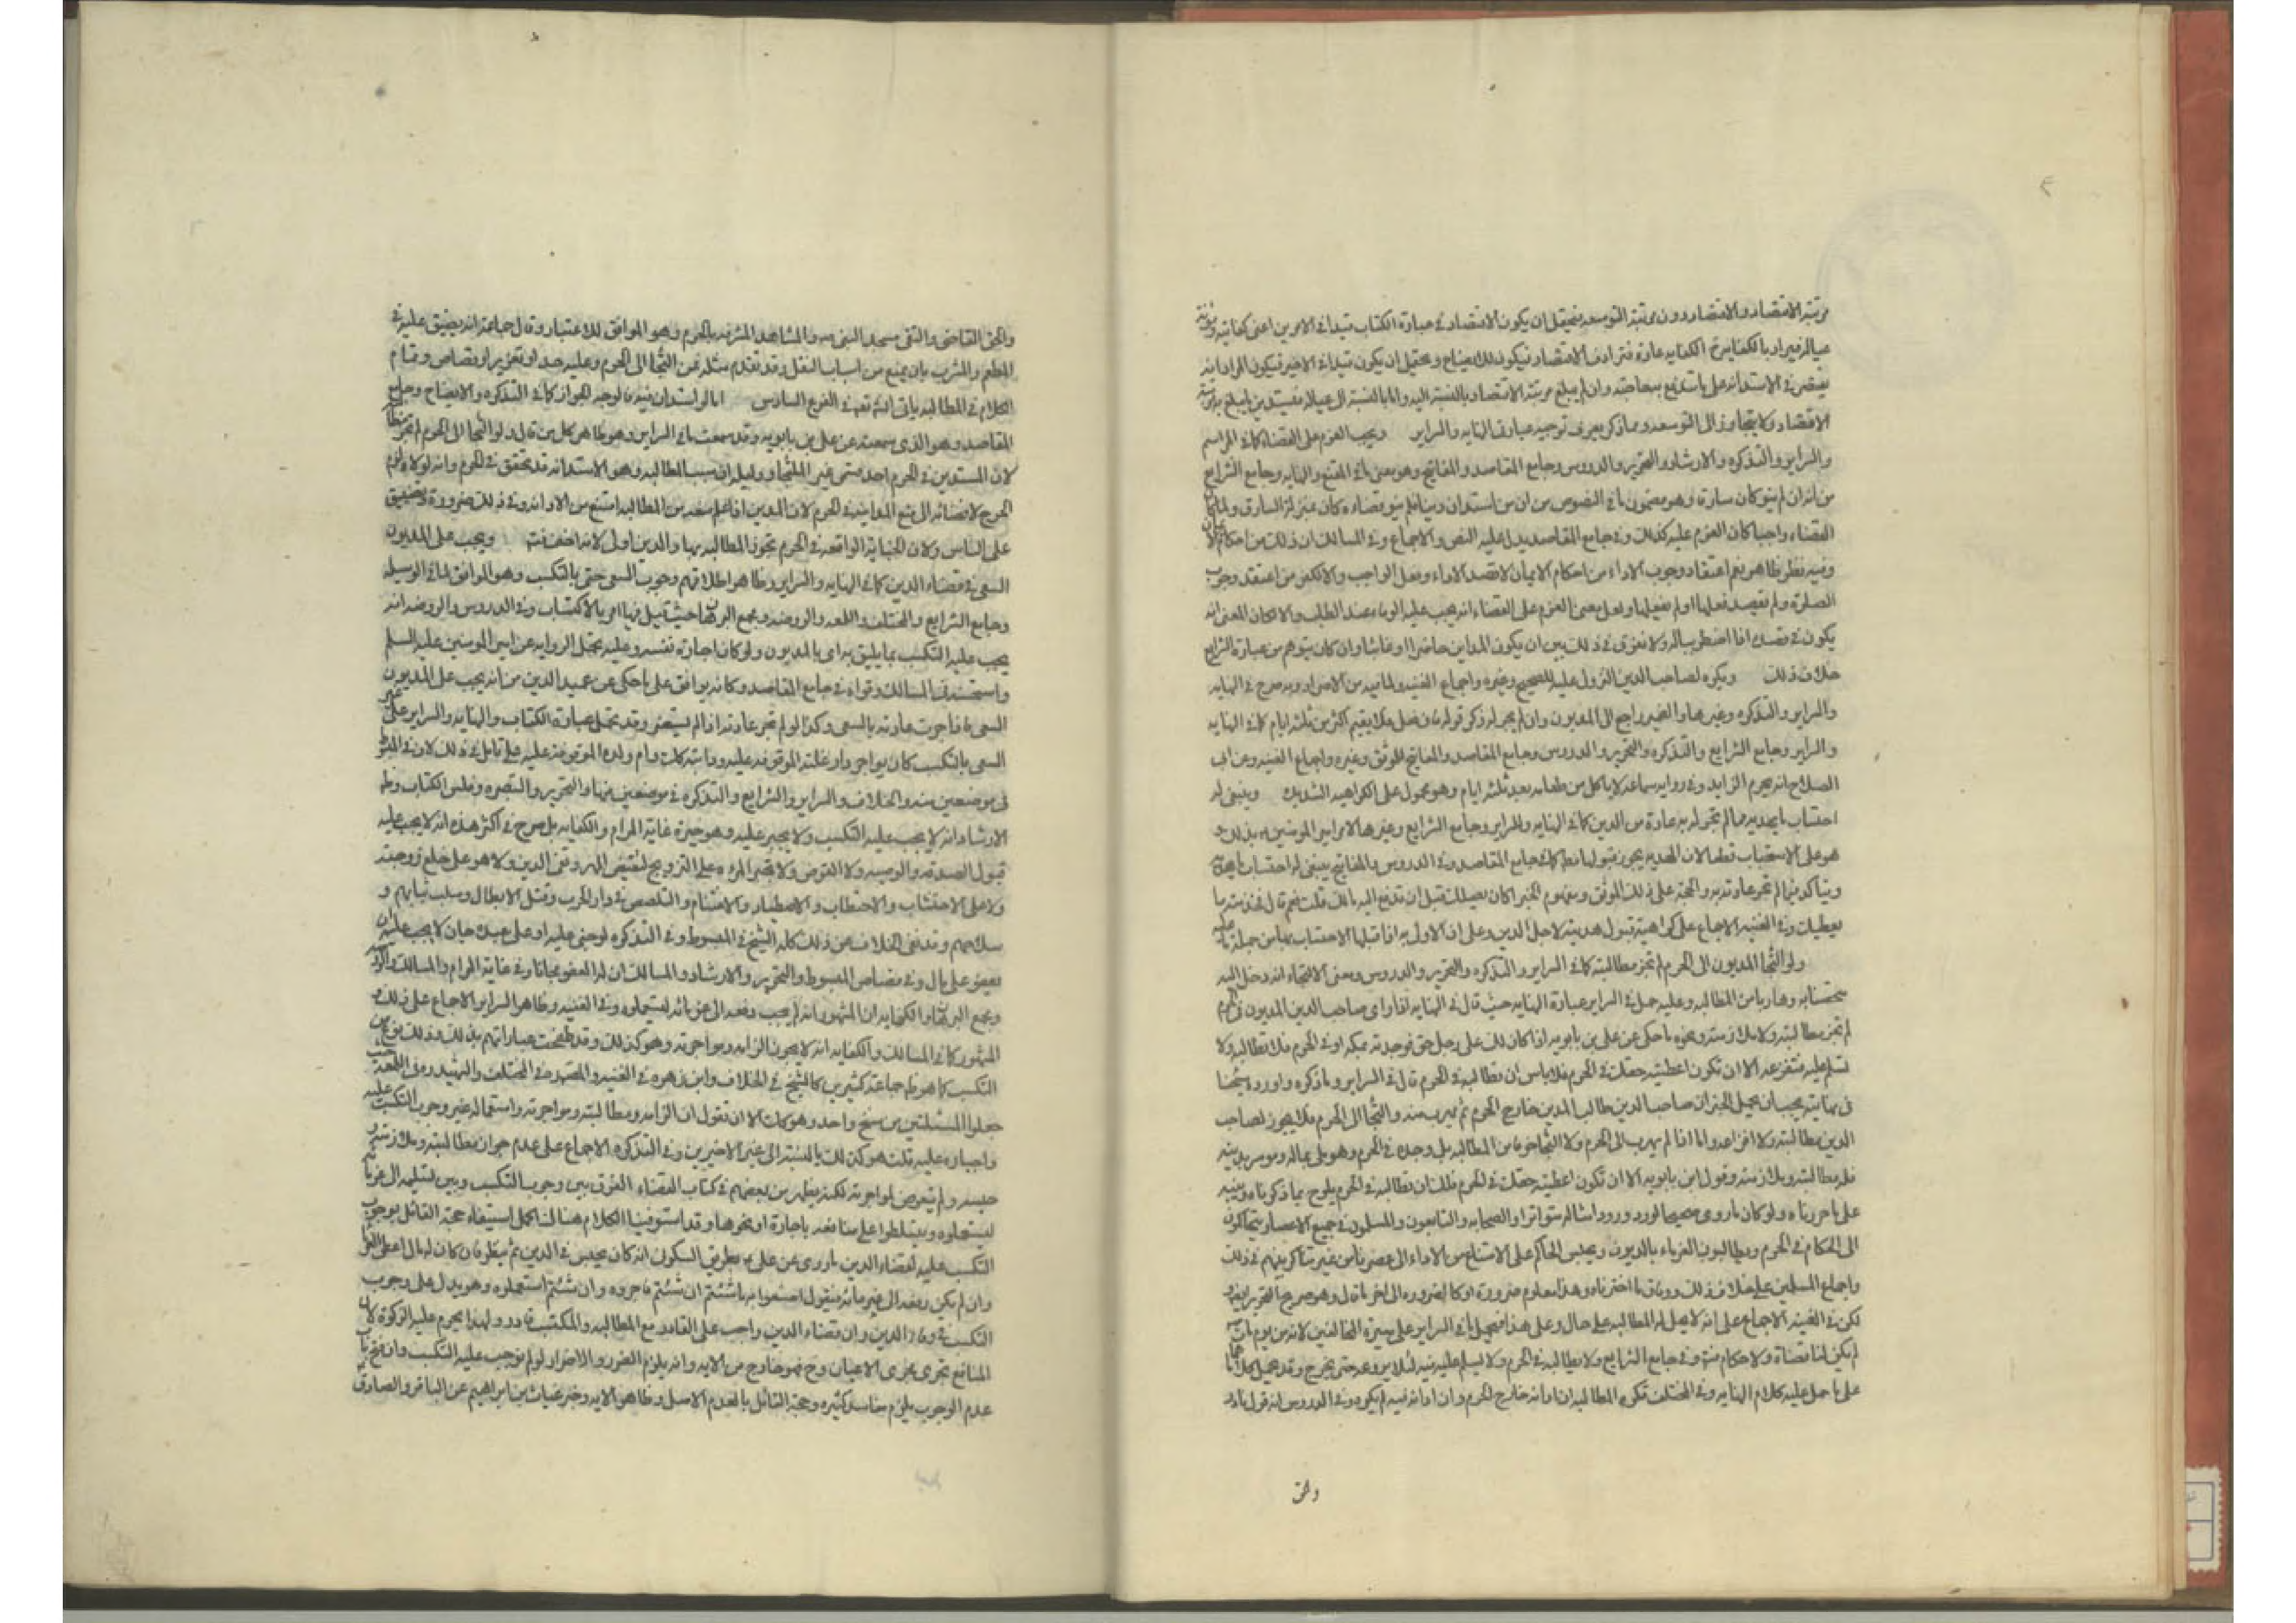 مرتبة الاقتصاد والاقتصار دون مرتبة التوسعه فيحتمل ان يكون الاقتصاد في عبارة الكتاب قيدا في الامرين اعني كفايته ومؤنة
عياله فيراد بالكفايه عادة فترادف الاقتصاد فيكون للايضاح ويحتمل ان يكون قيدا في الاخير فيكون المراد انه
يقتصر في الاستدانه على ما تندفع به حاجته وان لم يبلغ مرتبة الاقتصاد بالنسبة اليه واما بالنسبة الى عياله فيستدين ما يبلغ به مرتبة
الاقتصاد ولا يتجاوز الى التوسعه ومما ذكر يعرف توجيه عبارة النهايه والسراير ويجب العزم على القضاء كما في المراسم
والسراير والتذكره والارشاد والتحرير والدروس وجامع المقاصد والمفاتيح وهو معنى ما في المقنع والنهايه وجامع الشرايع
من انه ان لم ينو كان سارقا وهو مضمون ما في النصوص من ان من استدان دينا فلم ينو قضاءه كان بمنزلة السارق ولما كان
القضاء واجبا كان العزم عليه كذلك وفي جامع المقاصد يدل عليه النص والاجماع وفي المسالك ان ذلك من احكام الايمان
وفيه نظر ظاهر نعم اعتقاد وجوب الاداء من احكام الايمان لا قصد الاداء وفعل الواجب والا لكفر من اعتقد وجوب
الصلوة ولم يقصد فعلها او لم يفعلها ولعل معنى العزم على القضاء انه يجب عليه الوفاء عند الطلب والامكان المعنى انه
يكون في قصده اذا خطر بباله ولا فرق في ذلك بين ان يكون المداين حاضرا او غائبا وان كان يتوهم من عبارة الشرايع
خلاف ذلك ويكره لصاحب الدين النزول عليه للصحيح وغيره واجماع الغنيه ولما فيه من الاضرار وبه صرح في النهايه
والسراير والتذكره وغيرها والضمير راجع الى المديون وان لم يجر له ذكر قوله فان فعل فلا يقيم اكثر من ثلثه ايام كما في النهايه
والسراير وجامع الشرايع والتذكره والتحرير والدروس وجامع المقاصد والمفاتيح للموثق وغيره واجماع الغنيه وعن ابي
الصلاح انه يحرم الزايد وفي رواية سماعه لا ياكل من طعامه بعد ثلثه ايام وهو محمول على الكراهيه الشديده وينبغي له
احتساب ما يهديه مما لم تجر له به عادة من الدين كما في النهايه والسراير وجامع الشرايع وغيرها لامر امير المؤمنين بذلك و
هو على الاستحباب قطعا لان الهديه يجوز قبولها قطعا كما في جامع المقاصد وفي الدروس والمفاتيح ينبغي له احتساب ما يهديه
ويتاكد فيما لم تجر عادته به والحجة على ذلك الموثق ومفهوم الخبر اكان يصلك قبل ان تدفع اليه مالك قلت نعم قال فخذ منه ما
يعطيك وفي الغنيه الاجماع على كراهية قبول هديته لاجل الدين وعلى ان الاولى به اذا قبلها الاحتساب بها من جملة ما عليه
ولو التجا المديون الى الحرم لم تجز مطالبته كما في السراير والتذكره والتحرير والدروس ومعنى الالتجاء انه دخل اليه
متحصنا به وهاربا من المطالبه وعليه حمل في السراير عبارة النهايه حيث قال في النهايه اذا راى صاحب الدين المديون في الحرم
لم تجز مطالبته ولا ملازمته ونحوه ما حكي عن علي بن بابويه اذا كان لك على رجل حق فوجدته بمكه او في الحرم فلا تطالبه ولا
تسلم عليه فتفزعه الا ان تكون اعطيته حقك في الحرم فلا باس ان تطالبه في الحرم قال في السراير وما ذكره واورده شيخنا
في نهايته يجب ان يحمل الخبر ان صاحب الدين طالب المدين خارج الحرم ثم هرب منه والتجا الى الحرم فلا يجوز لصاحب
الدين مطالبته ولا افزاعه واما اذا لم يهرب الى الحرم ولا التجا خوفا من المطالبه بل وجده في الحرم وهو ملي بماله وموسر بدينه
فله مطالبته وملازمته وقول ابن بابويه الا ان تكون اعطيته حقك في الحرم فلك ان تطالبه في الحرم يلوح بما ذكرناه وينبه
على ما حررناه ولو كان ما روي صحيحا لورد ورود امثاله متواترا والصحابه والتابعون والمسلمون في جميع الاعصار يتحاكمون
الى الحكام في الحرم ويطالبون الغرماء بالديون ويحبس الحاكم على الامتناع من الاداء الى عصرنا من غير تناكر بينهم في ذلك
واجماع المسلمين على خلاف ذلك ووفاق ما اخترناه وهذا معلوم ضرورة او كالضروره الى اخر ما قال وهو صريح التحرير ايضا
لكن في الغنيه الاجماع على انه لا يحل له المطالبه على حال وعلى هذا فيحمل ما في السراير على سيرة المخالفين لانه من يوم مات
لم يكن لنا قضاة ولا حكام فتدبر وفي جامع الشرايع ولا يطالبه في الحرم ولا يسلم عليه فيه لئلا يروعه حتى يخرج وقد يحمل كلامهما
على ما حمل عليه كلام النهايه وفي المختلف تكره المطالبه ان ادانه خارج الحرم وان ادانه فيه لم يكره وفي الدروس انه قول نادر
والحق
والحق القاضي والتقي مسجد النبي ص والمشاهد المشرفه بالحرم وهو الموافق للاعتبار وقال جماعة انه يضيق عليه في
المطعم والمشرب بان يمنع من اسباب النقل وقد تقدم مثله فمن التجا الى الحرم وعليه حد او تعزير او قصاص وتمام
الكلام في المطالبه ياتي انشاء الله تعه في الفرع السادس اما لو استدان فيه فالوجه الجواز كما في التذكره والايضاح وجامع
المقاصد وهو الذي سمعته عن علي بن بابويه وقد سمعت ما في السراير وهو ظاهر كل من قال ولو التجا الى الحرم لم تجز مطالبته
لان المستدين في الحرم احد قسمي غير الملتجا ودليله ان سبب المطالبه وهو الاستدانه قد تحقق في الحرم وانه لولاه لزم
الحرج لافضائه الى منع المداينه في الحرم لان المدين اذا علم منعه من المطالبه امتنع من الادانه وفي ذلك ضرورة وتضييق
على الناس ولان الجناية الواقعه في الحرم تجوز المطالبه بها والدين اولى لانه اخف فتدبر ويجب على المديون
السعي في قضاء الدين كما في النهايه والسراير وظاهر اطلاقهم وجوب السعي حتى بالتكسب وهو الموافق لما في الوسيله
وجامع الشرايع والمختلف واللمعه والروضه ومجمع البرهان حيث قيل فيها امر بالاكتساب وفي الدروس والروضه انه
يجب عليه التكسب بما يليق به اي بالمديون ولو كان اجارة نفسه وعليه تحمل الروايه عن امير المومنين عليه السلم
واستحسنه في المسالك وقواه في جامع المقاصد وكانه يوافق على ما حكي عن عميد الدين من انه يجب على المديون
السعي فيما جرت عادته بالسعي وكذا لو لم تجر عادته اذا لم يستضر وقد تحمل عبارة الكتاب والنهايه والسراير على غير
السعي بالتكسب كان يواجر دارا وغلته الموقوفه عليه ودابته كانت وام ولده الموقوفه عليه على تامل في ذلك لان في المبسوط
في موضعين منه والخلاف والسراير والشرايع والتذكره في موضعين منها والتحرير والتبصره وفلس الكتاب وظ
الارشاد انه لا يجب عليه التكسب ولا يجبر عليه وهو خيرة غاية المرام والكفايه بل صرح في اكثر هذه انه لا يجب عليه
قبول الصدقه والوصيه ولا القرض ولا تجبر المرءه على التزويج لتقبض المهر وتقضي الدين ولا هو على خلع زوجته
ولا على الاحتشاش والاحتطاب والاصطياد والاغتنام والتلصص في دار الحرب وقتل الابطال وسلب ثيابهم و
سلاحهم وقد نفى الخلاف عن ذلك كله الشيخ في المبسوط وفي التذكره لو جني عليه او على عبده جان لا يجب عليه ان
يعفو على مال وفي قصاص المبسوط والتحرير والارشاد والمسالك ان له العفو مجانا وفي غاية المرام والمسالك
ومجمع البرهان والكفايه ان المشهور انه لم يجب دفعه الى غرمائه ليستعملوه وفي الغنيه وظاهر السراير الاجماع على ذلك و
المشهور كما في المسالك والكفايه انه لا يجوز الزامه ومواجرته وهو كذلك وقد طفحت عباراتهم بذلك وذلك نوع من
التكسب كما هو ظ جماعة كثيرين كالشيخ في الخلاف وابن زهره في الغنيه والمصنف في المختلف والشهيد في اللمعه حيث
جعلوا المسئلتين من سنخ واحد وهو كذلك الا ان نقول ان الزامه ومطالبته ومواجرته واستعماله غير وجوب التكسب عليه
واجباره عليه قلت هو كذلك بالنسبة الى غير الاخيرين وفي التذكره الاجماع على عدم جواز مطالبته وملازمته و
حبسه ولم يتعرض لمواجرته لكنه يظهر من بعضهم في كتاب القضاء الفرق بين وجوب التكسب وبين تسليمه الى غرمائه
ليستعملوه ويتسلطوا على منافعه باجارة او نحوها وقد استوفينا الكلام هنالك اكمل استيفاء حجة القائل بوجوب
التكسب عليه لقضاء الدين ما روي عن علي ع بطريق السكوني انه كان يحبس في الدين ثم ينظر فان كان له مال اعطى الغرماء
وان لم يكن دفعه الى غرمائه فيقول اصنعوا به ما شئتم ان شئتم فاجروه وان شئتم استعملوه وهو يدل على وجوب
التكسب في وفاء الدين وان قضاء الدين واجب على القادر مع المطالبه والمكتسب قادر ولهذا يحرم عليه الزكوة لان
المنافع تجري مجرى الاعيان وح فهو خارج من الايه وانه يلزم الضرر والاضرار لو لم يوجب عليه التكسب
عدم الوجوب يلزم مفاسد كثيره وحجة القائل بالعدم الاصل وظاهر الايه وخبر غياث بن ابراهيم عن الباقر والصادق